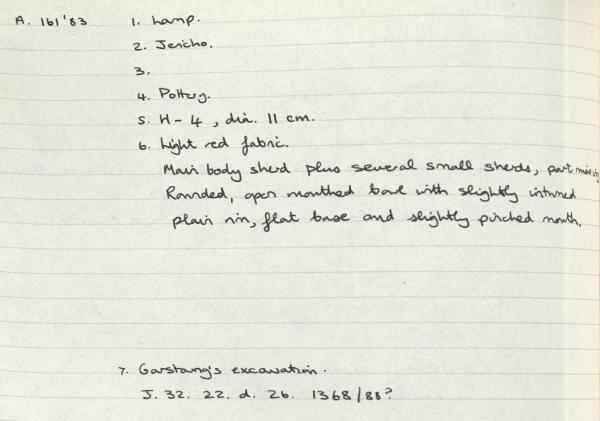 A. 161'83 1. Lamp.
2. Jericho.
3.
4. Pottery.
5. H - 4, dia. 11 cm.
6. Light red fabric.
Main body sherd plus several small sherds, part missing
Rounded, open mouthed bowl with slightly inturned
plain rim, flat base and slightly pinched mouth.
7. Garstang's excavation.
J. 32. 22. d. 26. 1368/88?